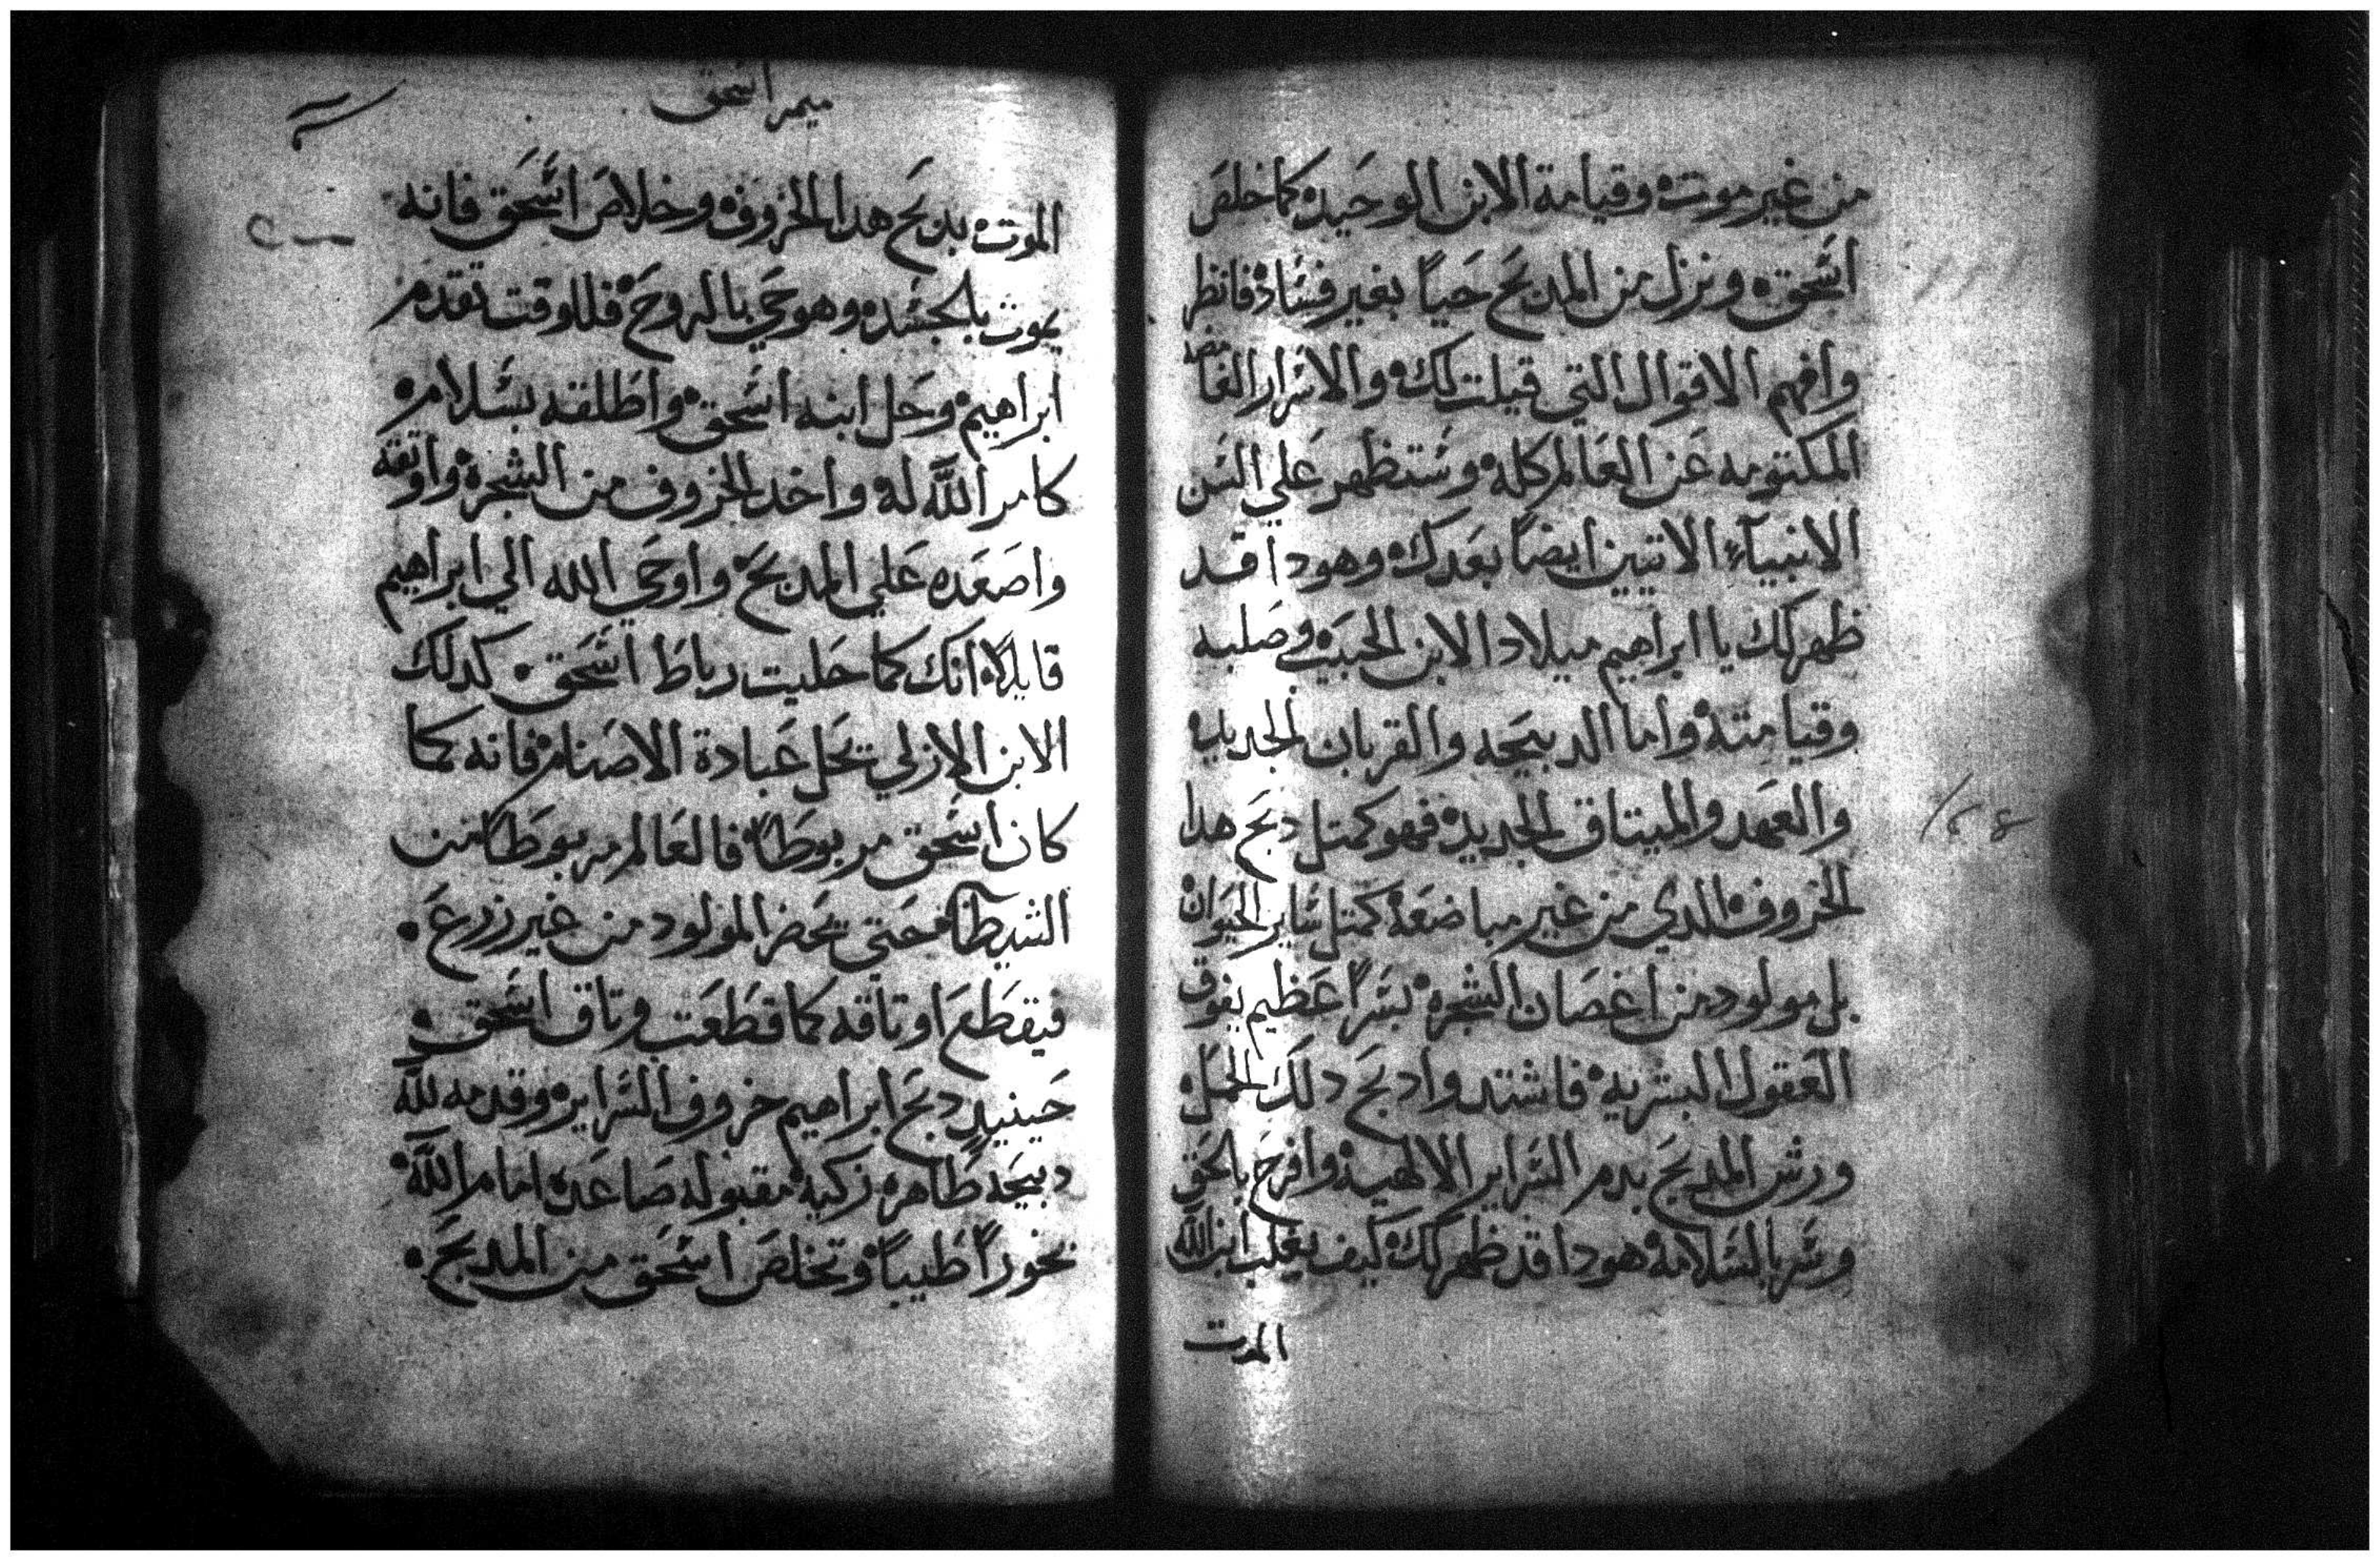 من غير موت وقيامة الابن الوحيد كما خلص
اسحق ونزل من المدبح حياً بغير فساد فانظر
وافهم الاقوال التي قيلت لك والاسرار الغامضه
المكتومه عن العالم كله وستظهر علي السن
الانبياء الاتيين ايضاً بعدك وهودا قد
ظهر لك يا ابراهيم ميلاد الابن الحبيب في صلبه
وقيامته واما الدبيحه والقربان الجديد
والعهد والميتاق الجديد فهو كمتل دبح هدا
الخروف الدي من غير مباضعة كمتل ساير الحيوان
بل مولود من اغصان الشجره بسراً عظيم يفوق
العقول البشريه فاشتد وادبح دلك الحمل
ورش المدبح بدم السراير الالهيه وافرح بالحق
وسر بالسلامة هودا قد ظهر لك كيف يغلب ابن الله
الموت
ميمر اسحق
الموت بدبح هدا الخروف وخلاص اسحق فانه
يموت بالجسد وهو حي بالروح فللوقت تقدم
ابراهيم وحل ابنه اسحق واطلقه بسلام
كامر الله له واخد الخروف من الشجرة واوتقه
واصعده علي المدبح واوحي الله الي ابراهيم
قايلاً انك كما حليت رباط اسحق كدلك
الابن الازلي يحل عبادة الاصنام فانه كما
كان اسحق مربوطاً فالعالم مربوطاً من
الشيطان حتي يحضر المولود من غير زرع
فيقطع اوتاقه كما قطعت وتاق اسحق
حينيد دبح ابراهيم خروف السراير وقدمه لله
دبيحه طاهره زكية مقبوله صاعده امام الله
بخوراً طيباً وتخلص اسحق من المدبح